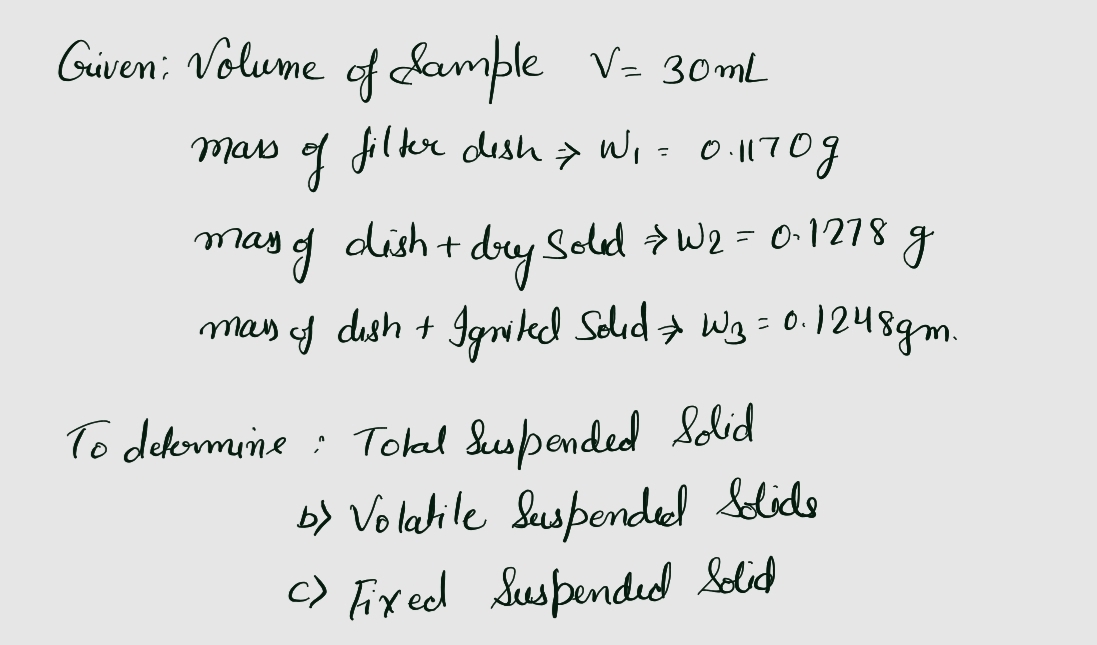 Given: Volume of Sample V= 30mL
mass of filter dish → W1 = 0.1170g
mass of dish + dry Solid → W2 = 0.1278 g
mass of dish + Ignited Solid → W3 = 0.1248gm.
To determine : Total Suspended Solid
b) Volatile Suspended Solids
c) Fixed Suspended Solid